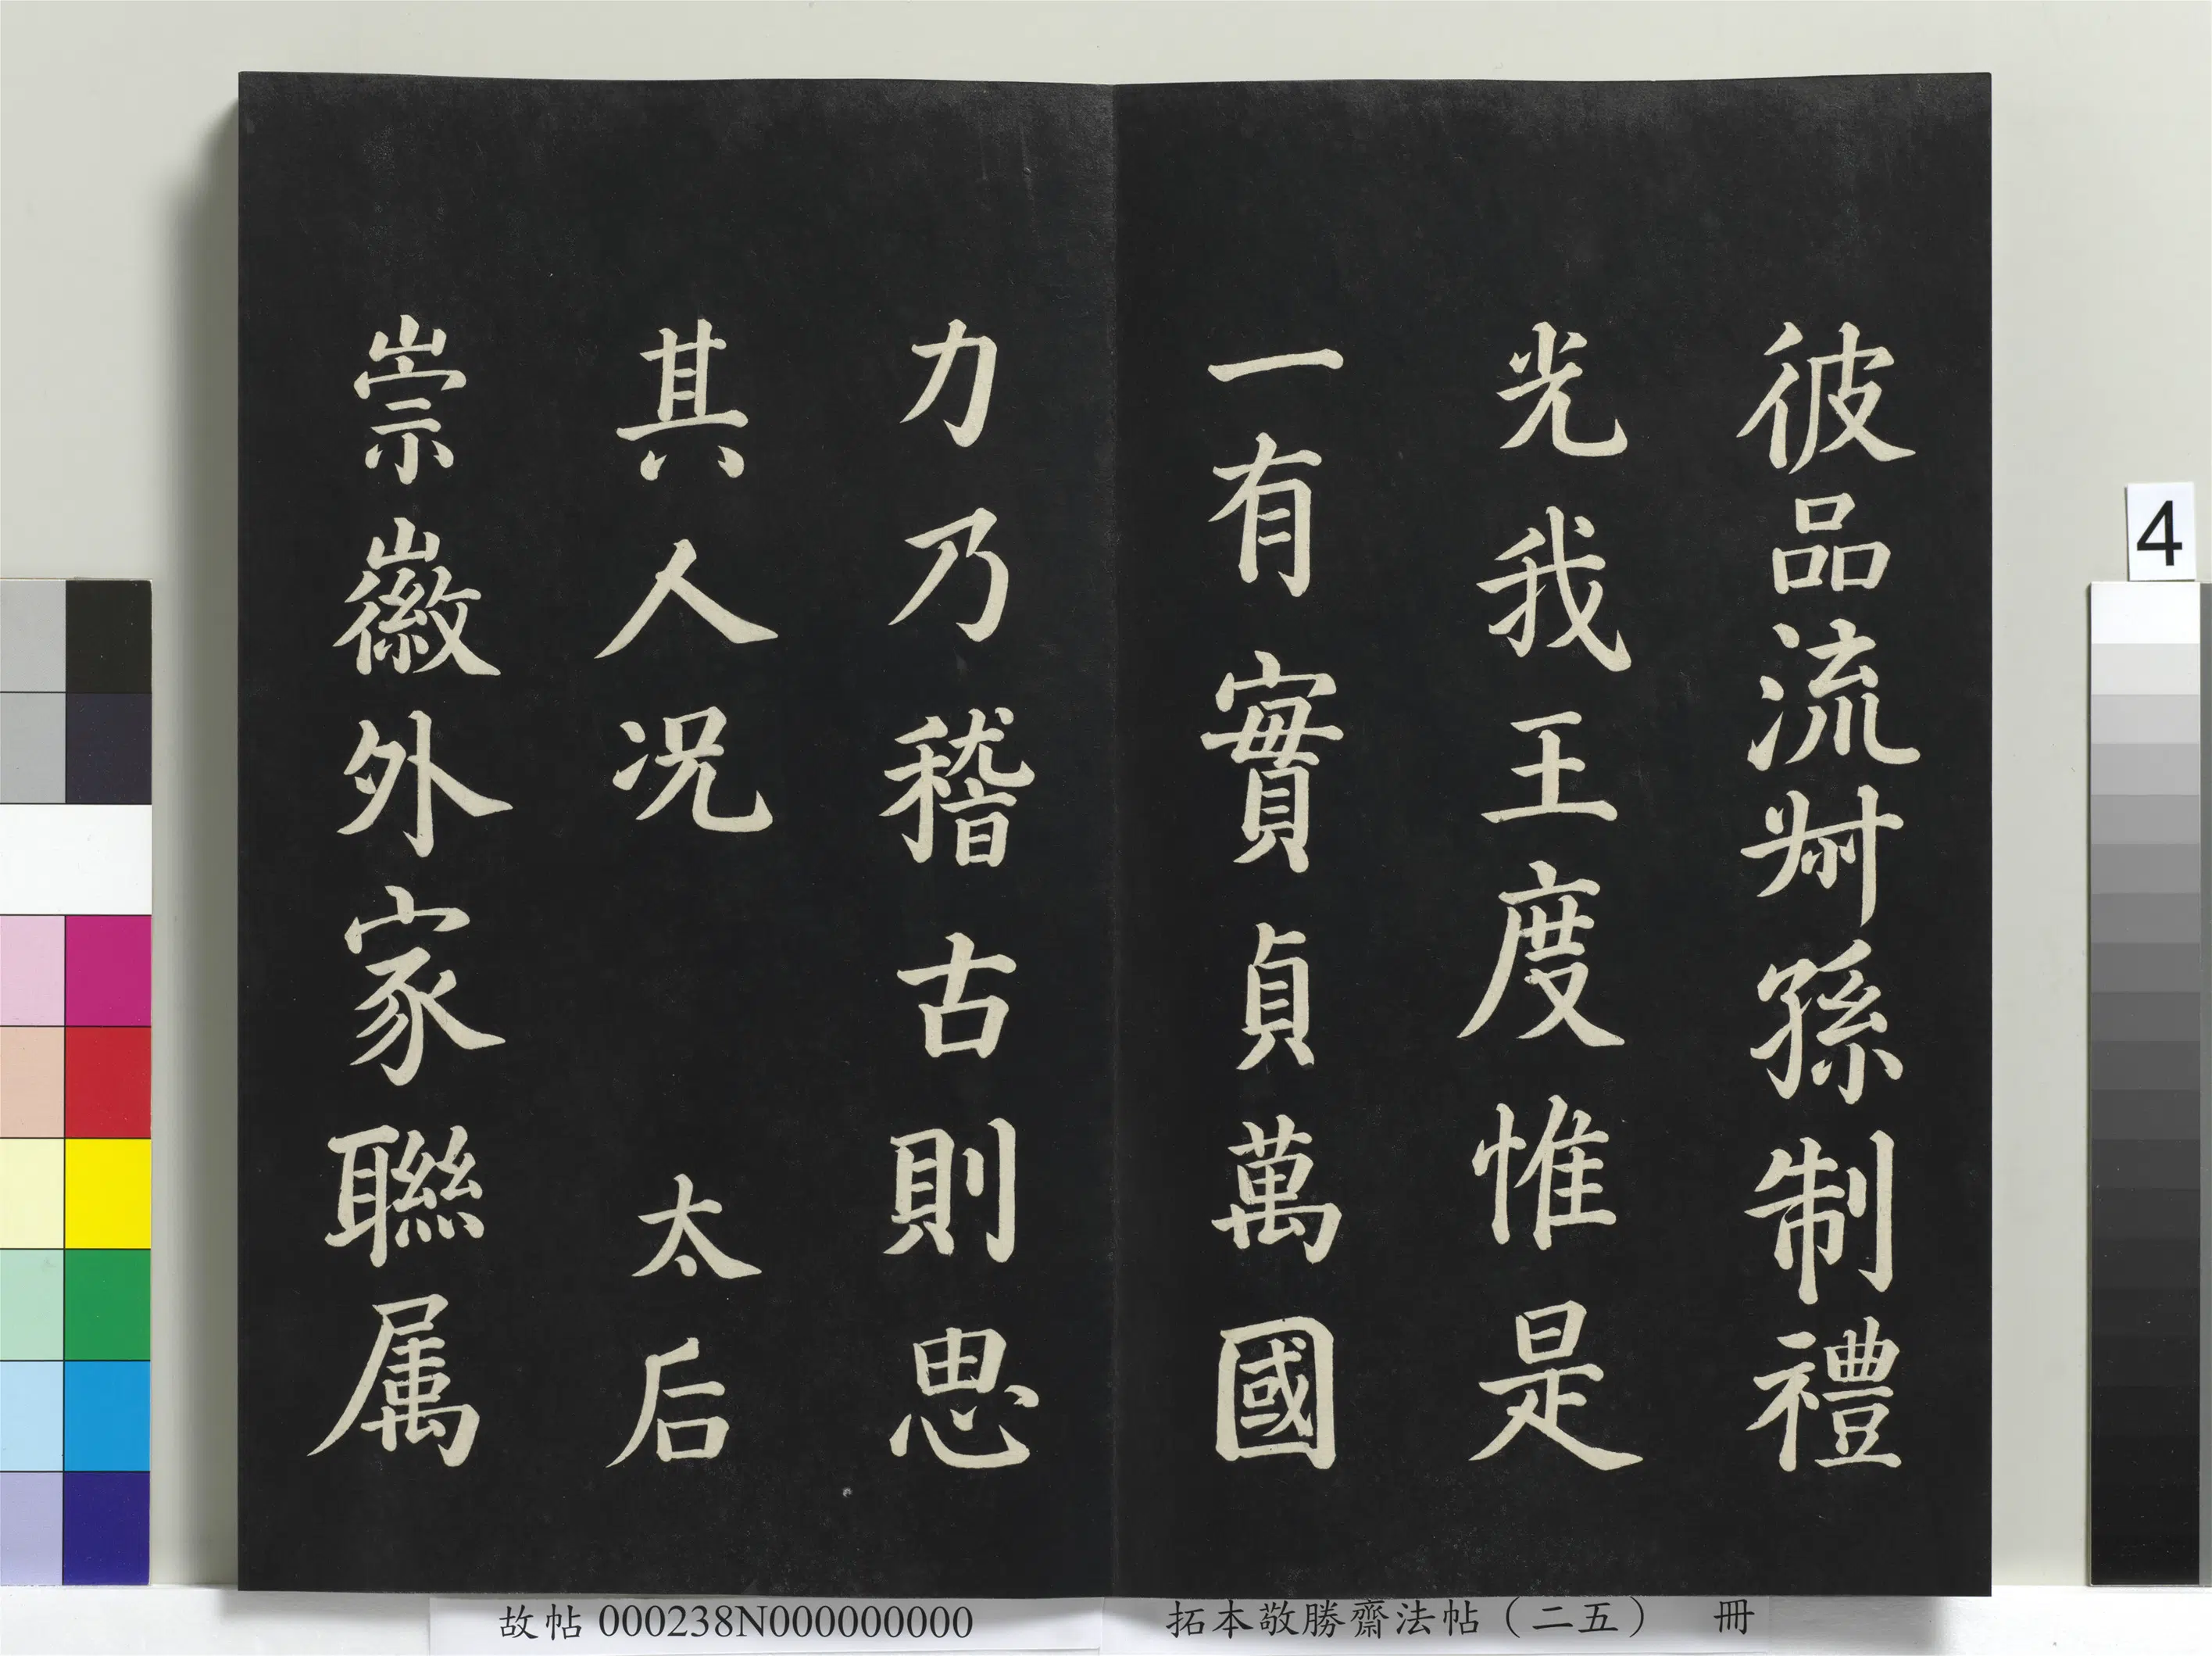 彼品流叔孫制禮
光我王度惟是
一有實貞萬國
力乃稽古則思
其人况 太后
崇徽外家聯属
4
拓本敬勝齋法帖（二五） 冊
故帖 000238N000000000